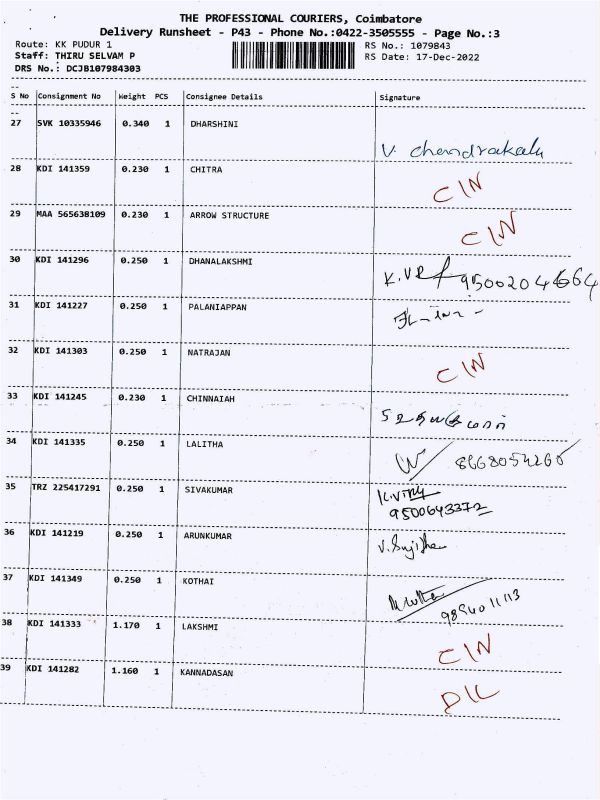 THE PROFESSIONAL COURIERS, Coimbatore
Delivery Runsheet - P43 - Phone No.:0422-3505555 - Page No.:3
Route: KK PUDUR 1 RS No.: 1079843
Staff: THIRU SELVAM P RS Date: 17-Dec-2022
DRS No.: DCJB107984303
S No Consignment No Weight PCS Consignee Details Signature
27 SVK 10335946 0.340 1 DHARSHINI
V. Chendrakala
28 KDI 141359 0.230 1 CHITRA
C/N
29 MAA 565638109 0.230 1 ARROW STRUCTURE
C/N
30 KDI 141296 0.250 1 DHANALAKSHMI
K.VR 9500204664
31 KDI 141227 0.250 1 PALANIAPPAN
32 KDI 141303 0.250 1 NATRAJAN
C/N
33 KDI 141245 0.230 1 CHINNAIAH
34 KDI 141335 0.250 1 LALITHA
8668054260
35 TRZ 225417291 0.250 1 SIVAKUMAR
9500643372
36 KDI 141219 0.250 1 ARUNKUMAR
V. Sujitha
37 KDI 141349 0.250 1 KOTHAI
9894011113
38 KDI 141333 1.170 1 LAKSHMI
C/N
39 KDI 141282 1.160 1 KANNADASAN
D/L